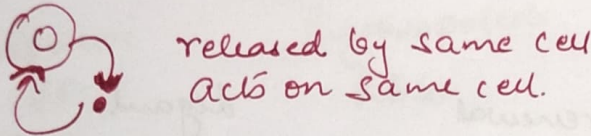 released by same cell
acts on same cell.